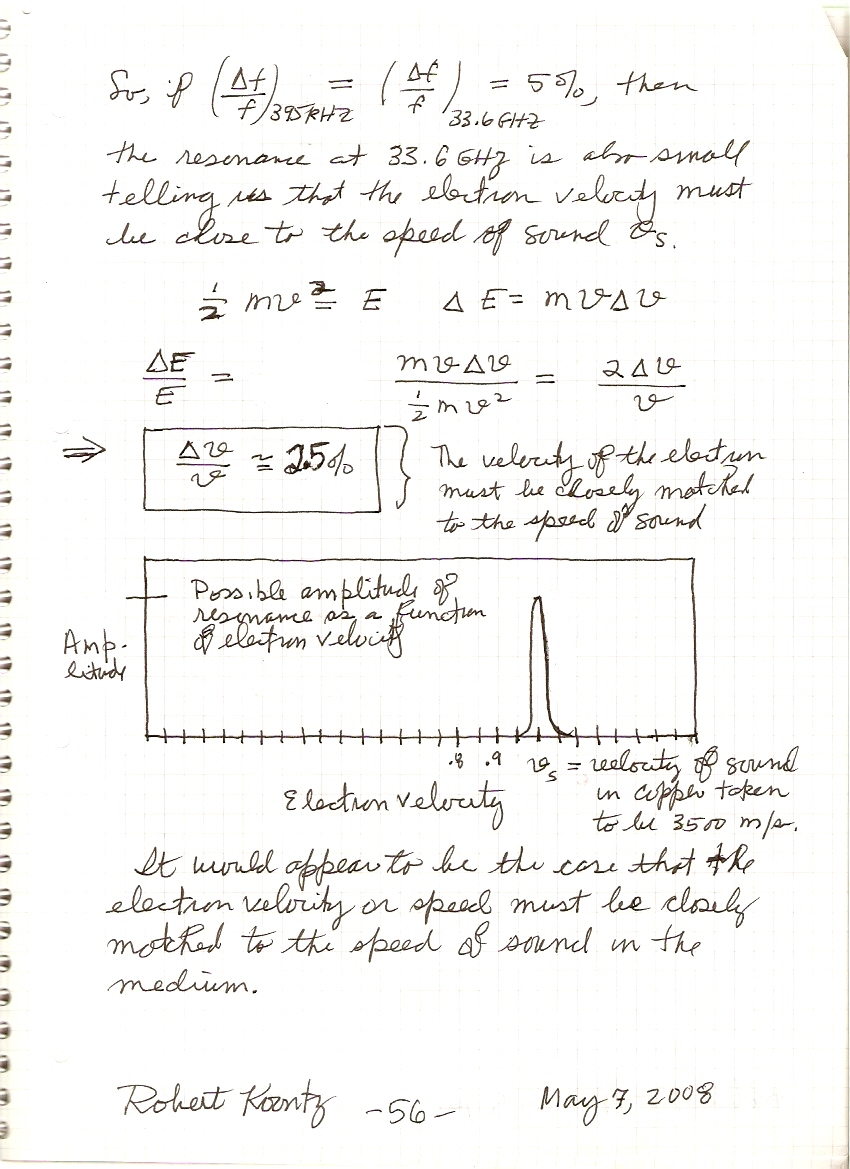 So, if (Δf/f)395KHZ = (Δf/f)33.6GHZ = 5%, then
the resonance at 33.6 GHz is also small
telling us that the electron velocity must
be close to the speed of sound vs.
½ mv² = E   ΔE = mvΔv
ΔE/E = mvΔv / ½mv² = 2Δv/v
⇒ Δv/v ≃ 2.5%
The velocity of the electron
must be closely matched
to the speed of sound
Possible amplitude of
resonance as a function
of electron velocity
Amp-
litude
.8 .9 vs = velocity of sound
in copper taken
to be 3500 m/s.
Electron velocity
It would appear to be the case that the
electron velocity or speed must be closely
matched to the speed of sound in the
medium.
Robert Koontz -56- May 7, 2008